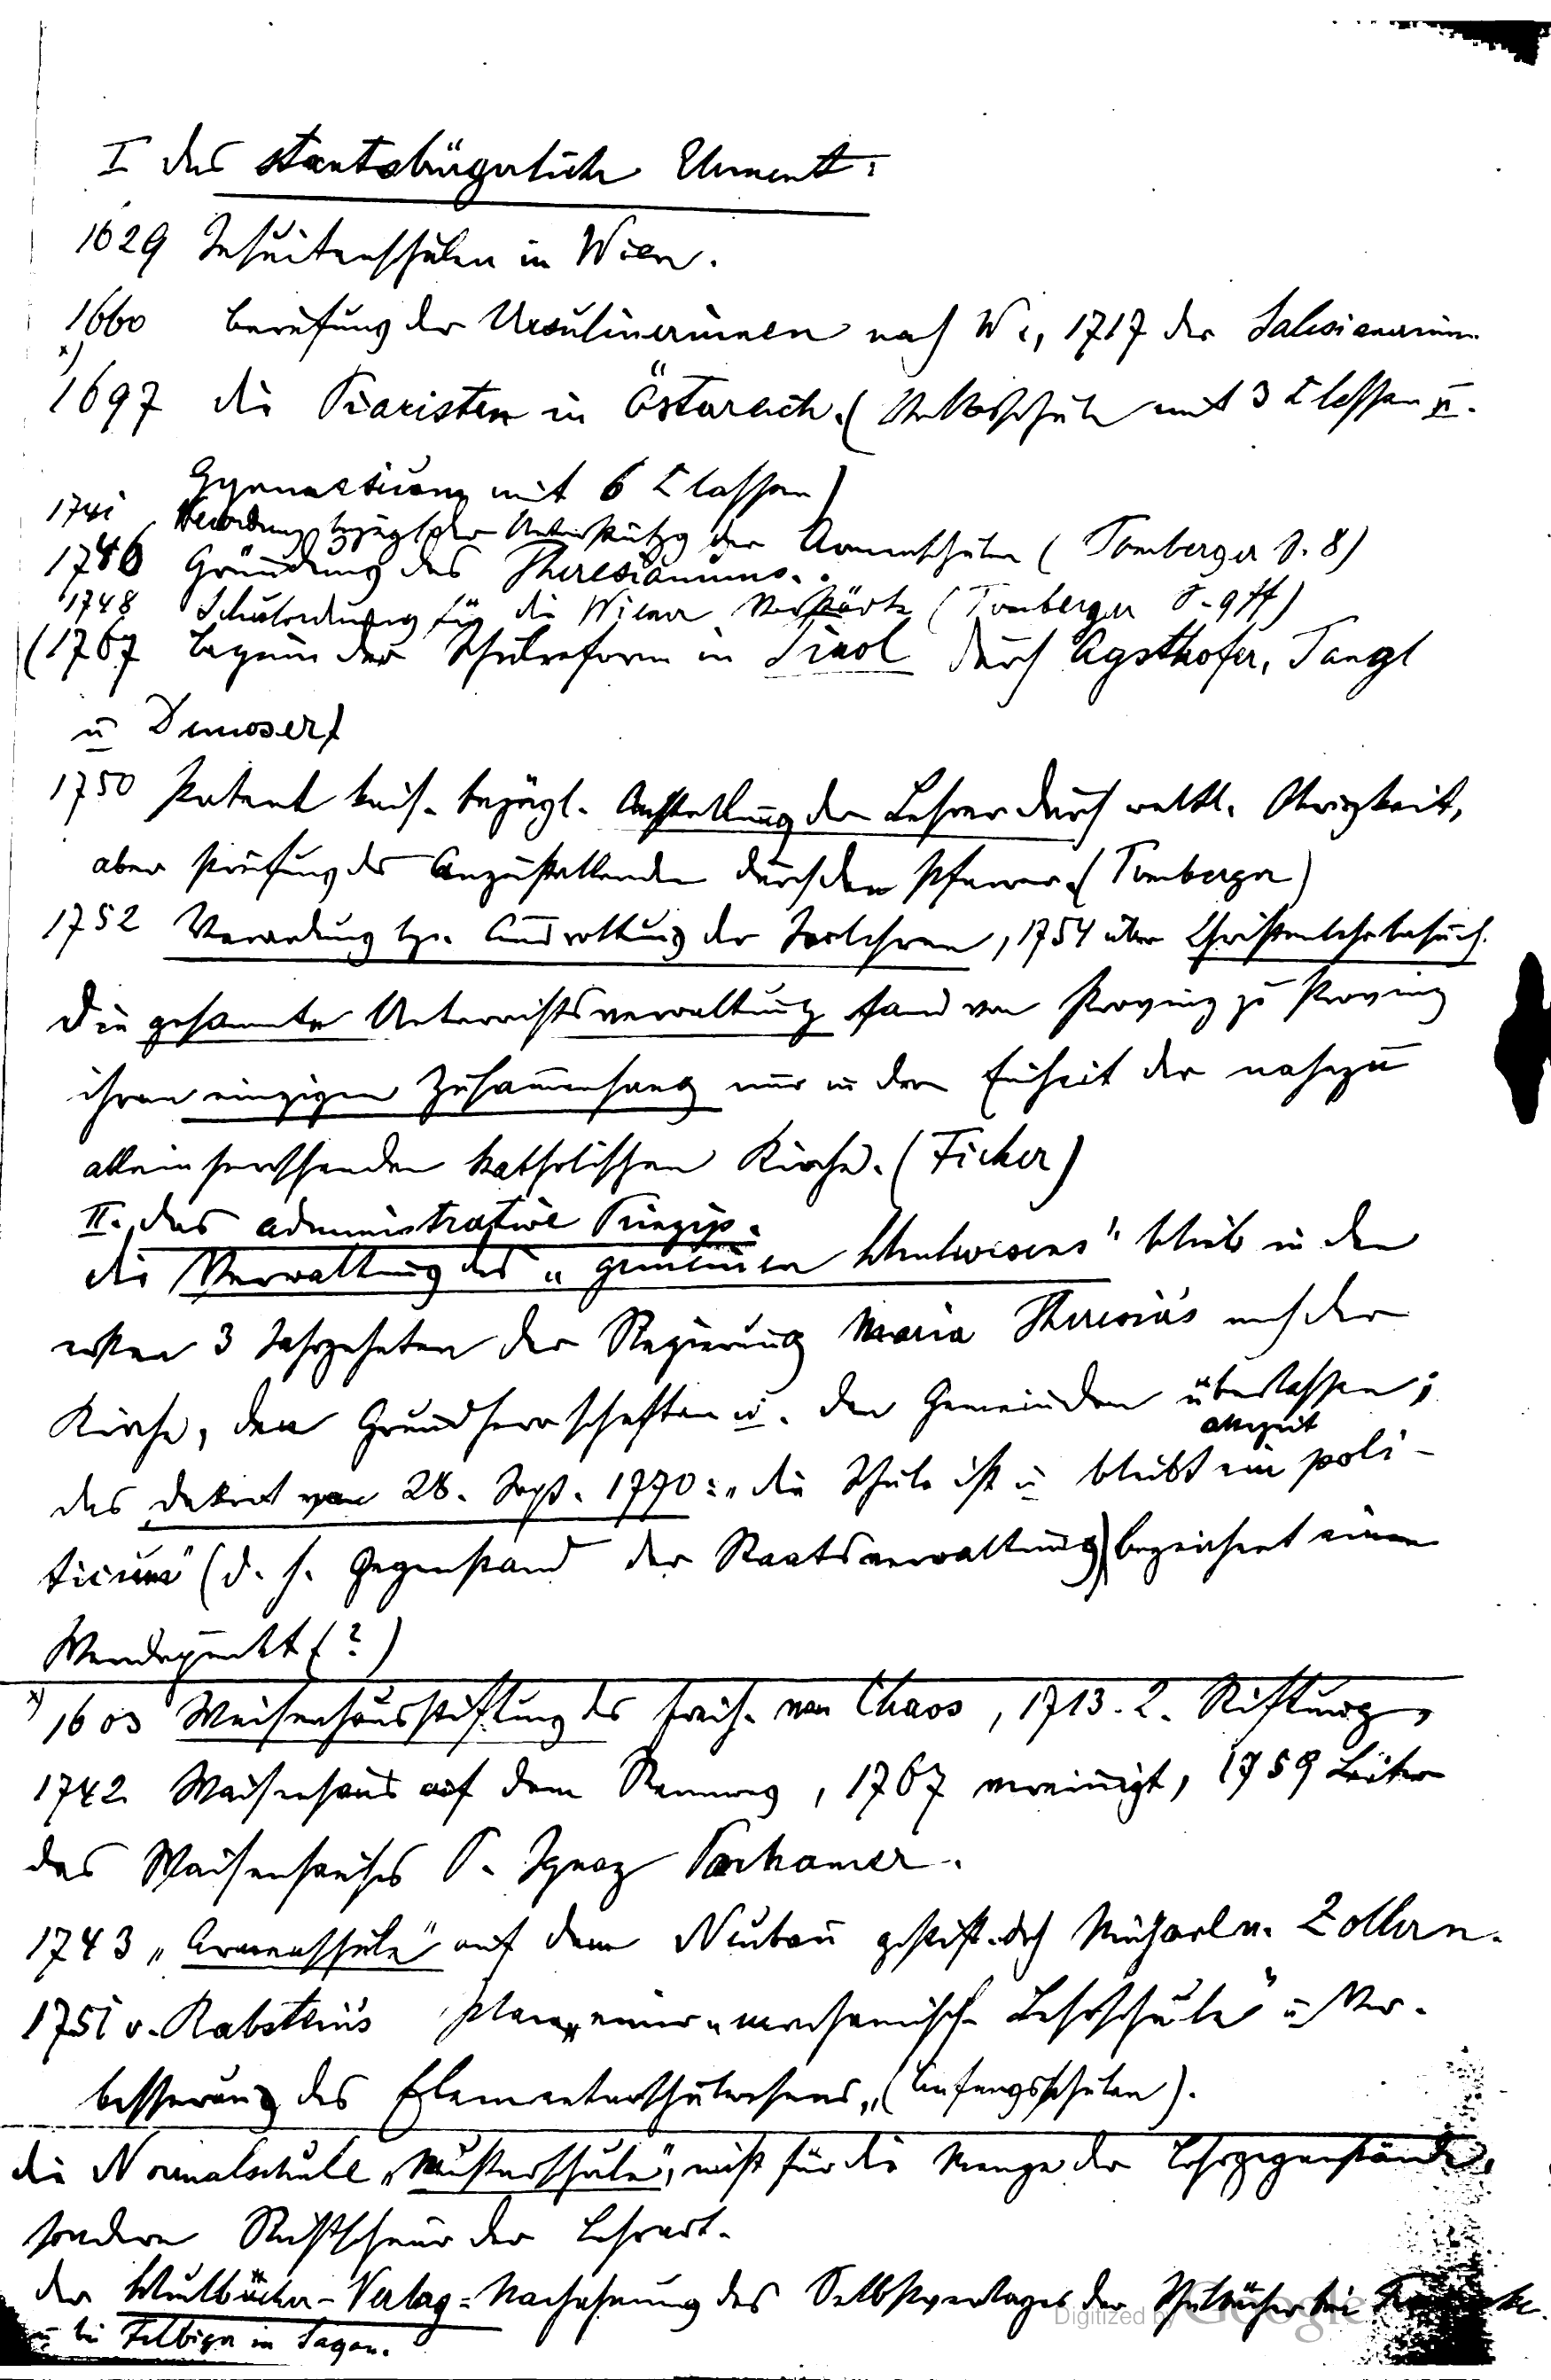 I das staatsbürgerliche Element:
1629 Jesuitenschulen in Wien.
1660 Berufung der Ursulinerinnen nach W., 1717 der Salesianerinn.
x)
1697 die Piaristen in Österreich. (Volksschule mit 3 Classen u.
Gymnasium mit 6 Classen)
1741 Verordnung bezügl. der Unterstützg der Armenschulen (Tomberger S. 8)
1746 Gründung des Theresianums.
1748 Schulordnung für die Wiener Vorstädte (Tomberger S. 9 ff)
(1767 Beginn der Schulreform in Tirol durch Agsthofer, Tangl
u Dumoser)
1750 Patent kais. bezügl. Anstellung der Lehrer durch weltl. Obrigkeit,
aber Prüfung der Anzustellenden durch den Pfarrer. (Tomberger)
1752 Verordnung bz. Ausrottung der Irrlehren, 1754 über Christenlehrbesuch.
Die gesammte Unterrichtsverwaltung fand von Provinz zu Provinz
ihren einzigen Zusammenhang nur in der Einheit der nahezu
alleinherrschenden katholischen Kirche. (Ficker)
II. das administrative Prinzip.
die Verwaltung des „gemeinen Schulwesens" blieb in den
ersten 3 Jahrzehnten der Regierung Maria Theresia's noch der
Kirche, den Grundherrschaften u. den Gemeinden überlassen;
allezeit
das Dekret vom 28. Sept. 1770: „die Schule ist u bleibt ein poli-
ticum" (d. h. Gegenstand der Staatsverwaltung) bezeichnet einen
Wendepunkt (?)
x) 1603 Waisenhausstiftung des Freih. von Chaos, 1713. 2. Stiftung,
1742 Waisenhaus auf dem Rennweg, 1767 vereinigt, 1759 Leiter
des Waisenhauses P. Ignaz Parhamer.
1743 „Armenschule" auf dem Neubau gestift. dch Michael v. Zollern.
1751 v. Rabstein's Plan einer „mechanisch. Lehrschule" u Ver-
besserung des Elementarschulwesens, (Anfangsschulen).
die Normalschule „Musterschule", nicht für die Menge der Lehrgegenstände,
sondern Richtschnur der Lehrart.
der Schulbücher-Verlag = Nachahmung des Selbstverlages der Schulbücher bei
u bei Felbiger in Sagan.
Digitized by Google